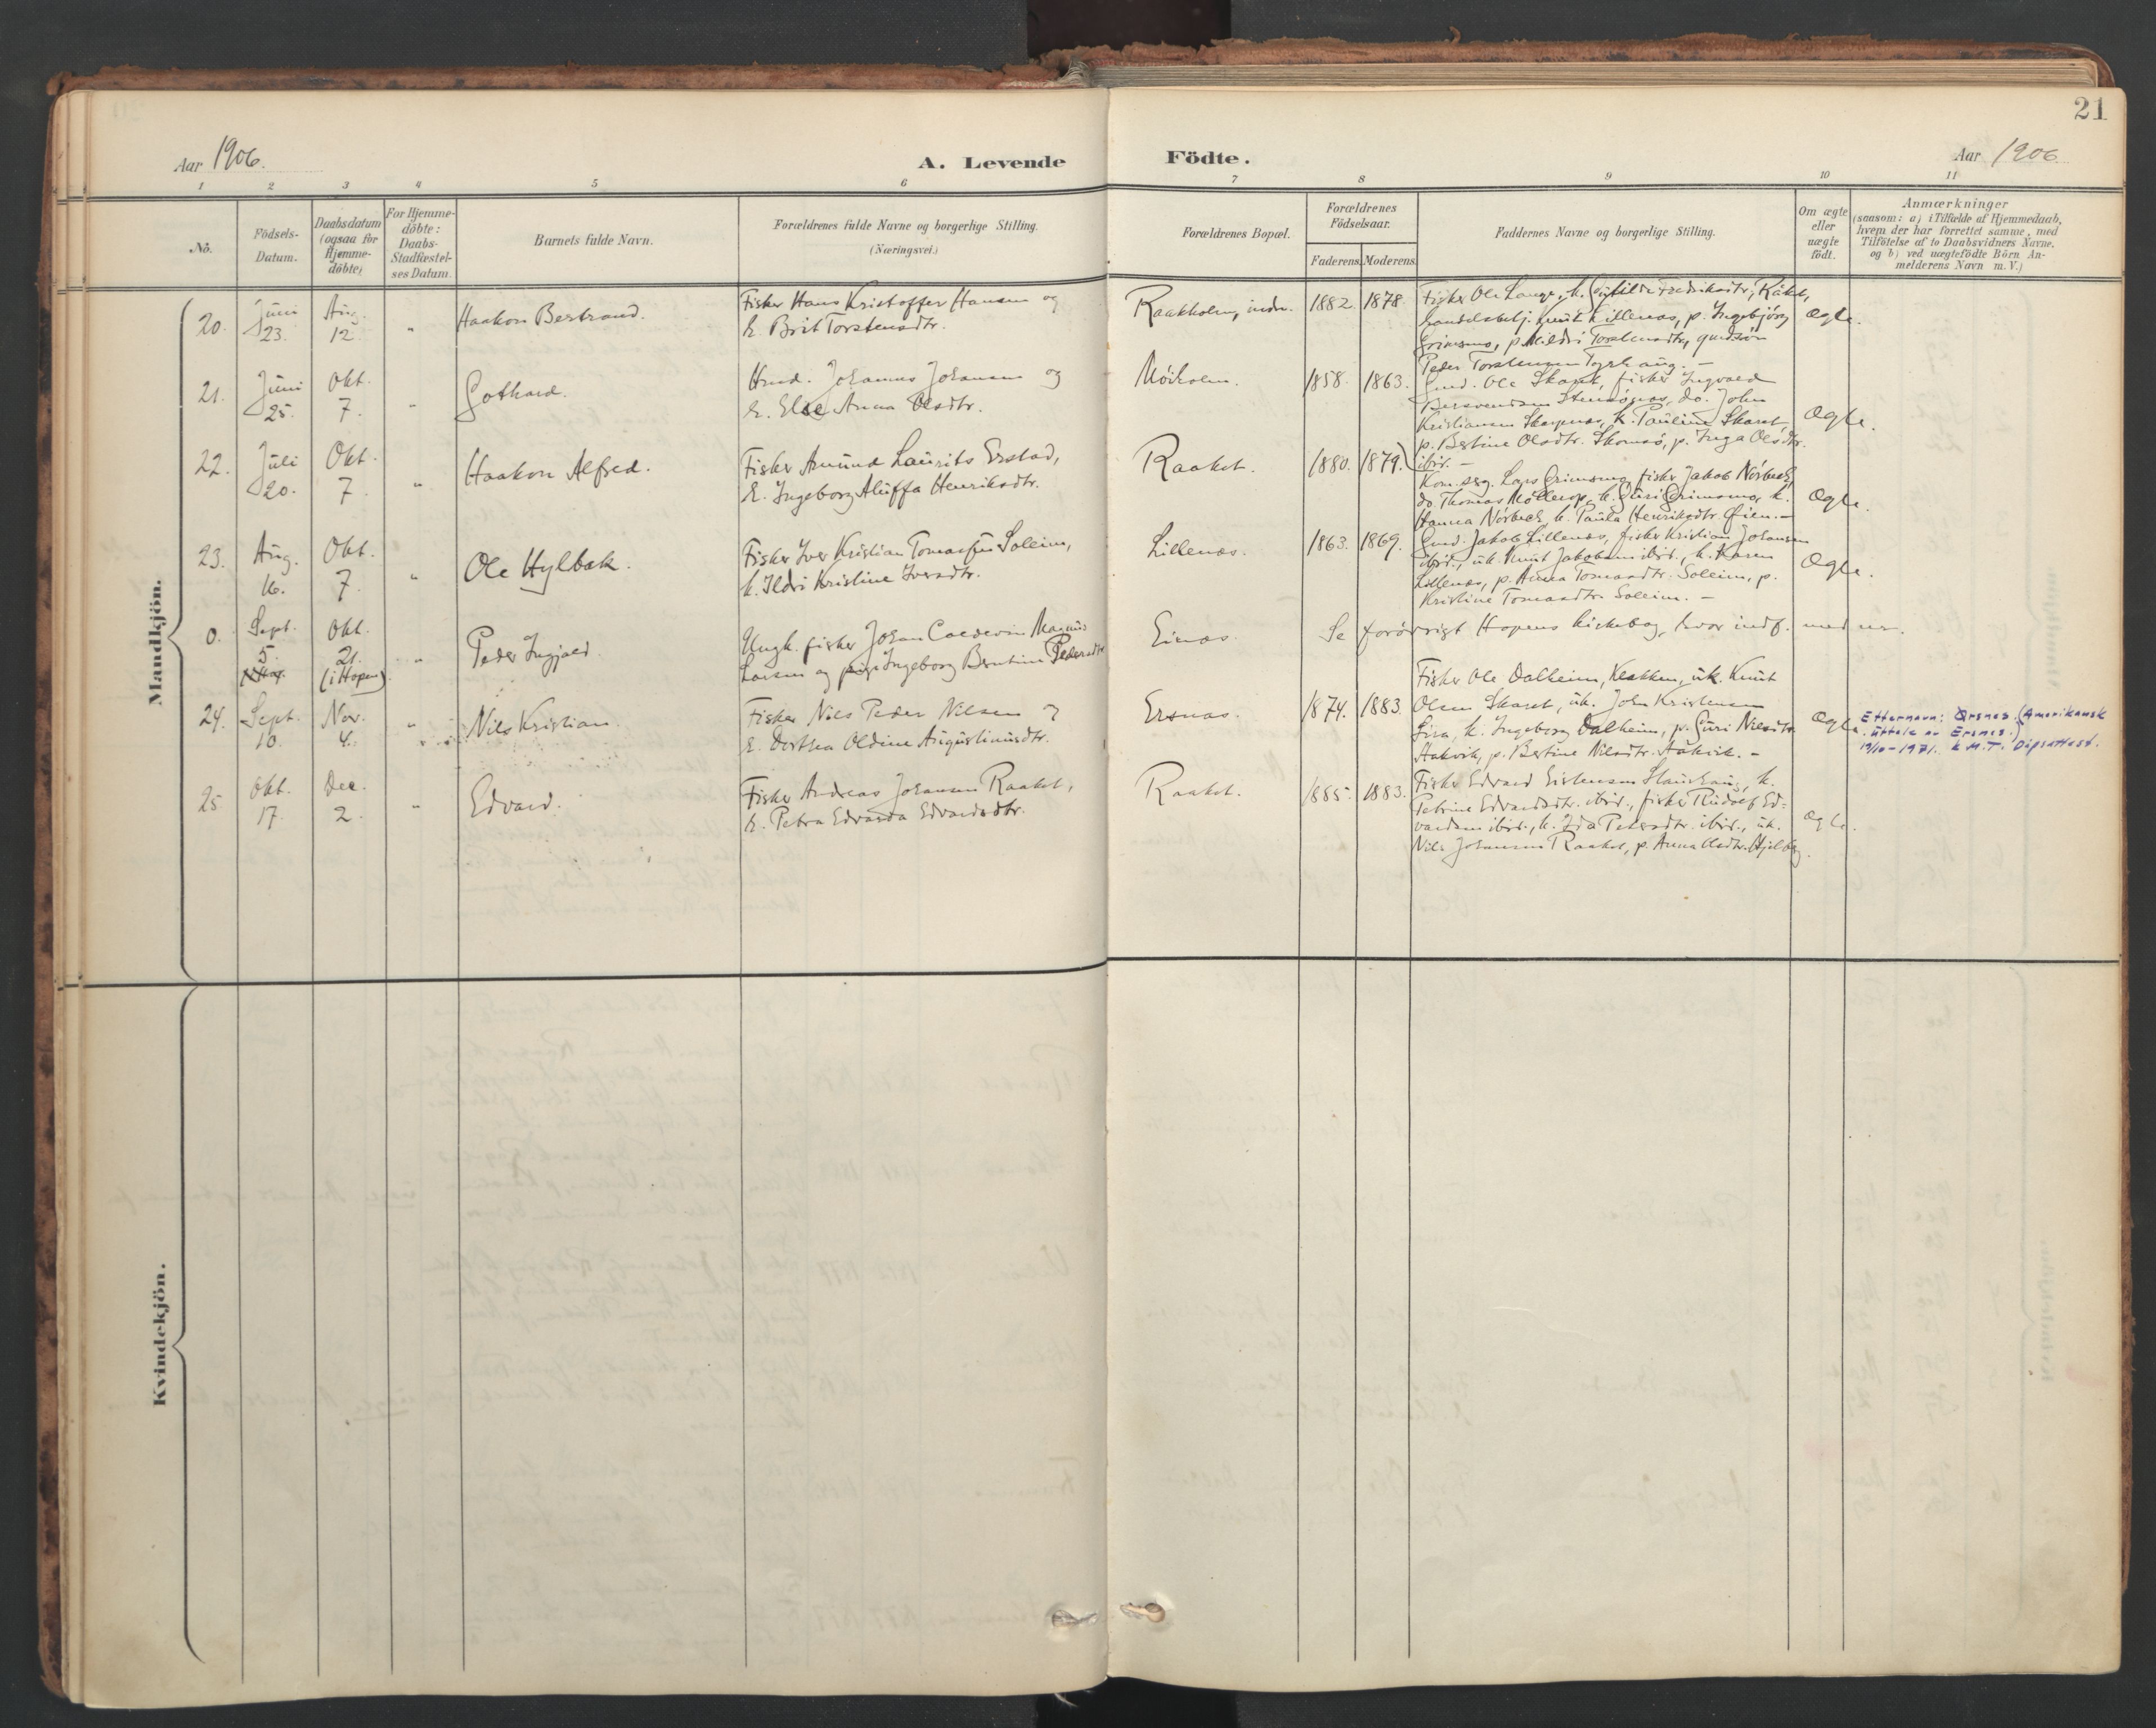 21
Aar 1906.
A. Levende Födte.
Aar 1906.
1 2 3 4 5 6 7 8 9 10 11
No.
Födsels-
Datum.
Daabsdatum
(ogsaa for
Hjemme-
döbte)
For Hjemme-
döbte:
Daabs-
Stadfæstel-
ses Datum.
Barnets fulde Navn.
Forældrenes fulde Navne og borgerlige Stilling.
(Næringsvei.)
Forældrenes Bopæl.
Forældrenes
Födselsaar.
Faderens. Moderens.
Faddernes Navne og borgerlige Stilling.
Om ægte
eller
uægte
födt.
Anmærkninger
(saasom: a) i Tilfælde af Hjemmedaab,
hvem der har forrettet samme, med
Tilföielse af to Daabsvidners Navne.
og b) ved uægtefödte Börn An-
melderens Navn m. V.)
Mandkjön.
20.
Juni
23.
Aug.
12.
"
Haakon Bertrand.
Fisker Hans Kristoffer Hansen og
h. Brit Torstensdtr.
Raakholm, indre.
1882. 1878.
Fisker Ole Lange, h.
handelsbetj. Knut Lillenæs, p. Ingebjörg
Grimsmo, p. Mildri Torstensdtr,
Peder Torstensen
Ægte.
21.
Juni
25.
Okt.
7.
"
Gothard.
Johannes Johansen og
h. Else Anna Olsdtr.
1858. 1863.
Ole Skaret, fisker Ingvald
do. John
Kristiansen Skarpnæs, h. Pauline Skaret,
p. Bertine Olsdtr. p. Inga Olsdtr.
ibid. –
Ægte.
22.
Juli
20.
Okt.
7.
"
Haakon Alfred.
Fisker Amund Laurits Erstad,
h. Ingeborg Aluffa Henriksdtr.
Raaket.
1880. 1879.
Lars Grimsmo, fisker Jakob Nörbeck,
do. Thomas Möllerop, h. Guri Grimsmo, h.
Hanna Nörbeck, h. Paula Henriksdtr. Öien. –
Ægte.
23.
Aug.
16.
Okt.
7.
"
Ole Hylbak.
Fisker Iver Kristian Tomassen Soleim,
h. Ildri Kristine Iversdtr.
Lillenæs.
1863. 1869.
Jakob Lillenæs, fisker Kristian Johansen
ibid., uk. Knut Jakobsen ibid., h. Karen
Lillenæs, p. Anna Tomasdtr. Soleim, p.
Kristine Tomasdtr. Soleim. –
Ægte.
0.
Sept.
5.
Okt.
21.
(i Hopen)
"
Peder Ingjald.
Ungk. fisker Johan Caldevin Magnus
Larsen og pige Ingeborg Berntine Pedersdtr
Einæs.
Se forövrigt Hopens kirkebog, hvor indf. med nr.
24.
Sept.
10.
Nov.
4.
"
Nils Kristian.
Fisker Nils Peder Nilsen og
h. Dorthea Oldine Augustinusdtr.
Ersnæs.
1874. 1883.
Fisker Ole Dalheim, Klakken, uk. Knut
Olsen Skaret, uk. John Kristensen
Lira, h. Ingeborg Dalheim, p. Guri Nilsdtr.
p. Bertine Nilsdtr. –
Ægte.
Etternavn: Orsnes. (Amerikansk
uttale av Ersnes.)
19/10-1971. k M.T. Dåpsattest.
25.
Okt.
17.
Dec.
2.
"
Edvard.
Fisker Andreas Johansen Raaket,
h. Petra Edvarda Edvardsdtr.
Raaket.
1885. 1883.
Fisker Edvard Eistensen h.
Petrine Edvardsdtr. ibid., fisker Rudolf Ed-
vardsen ibid., h. Ida Petersdtr. ibid., uk.
Nils Johansen Raaket, p. Anna Olsdtr. Hjelbog.
Ægte.
Kvindekjön.